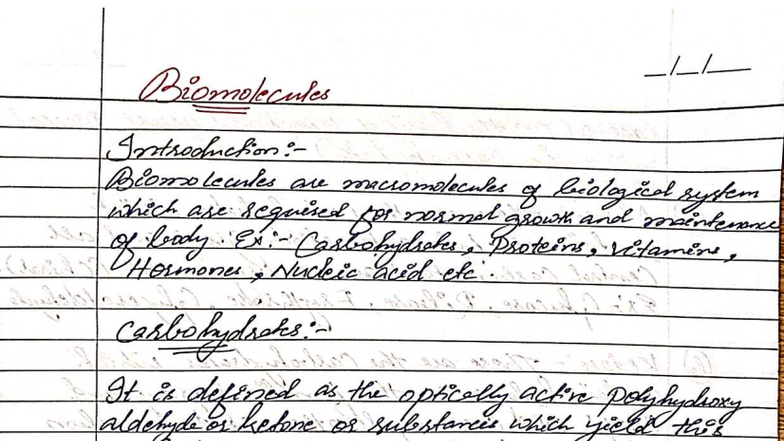 _/_/_
Biomolecules
Introduction:-
Biomolecules are macromolecules of biological system
which are required for normal growth and maintenance
of body. Ex:- Carbohydrates, Proteins, vitamins,
Hormones, Nucleic acid etc.
Carbohydrates:-
It is defined as the optically active polyhydroxy
aldehyde or ketone or substances which yield this